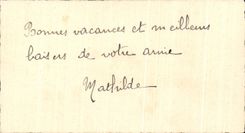 Bonnes vacances et meilleurs
baisers de votre amie
Mathilde